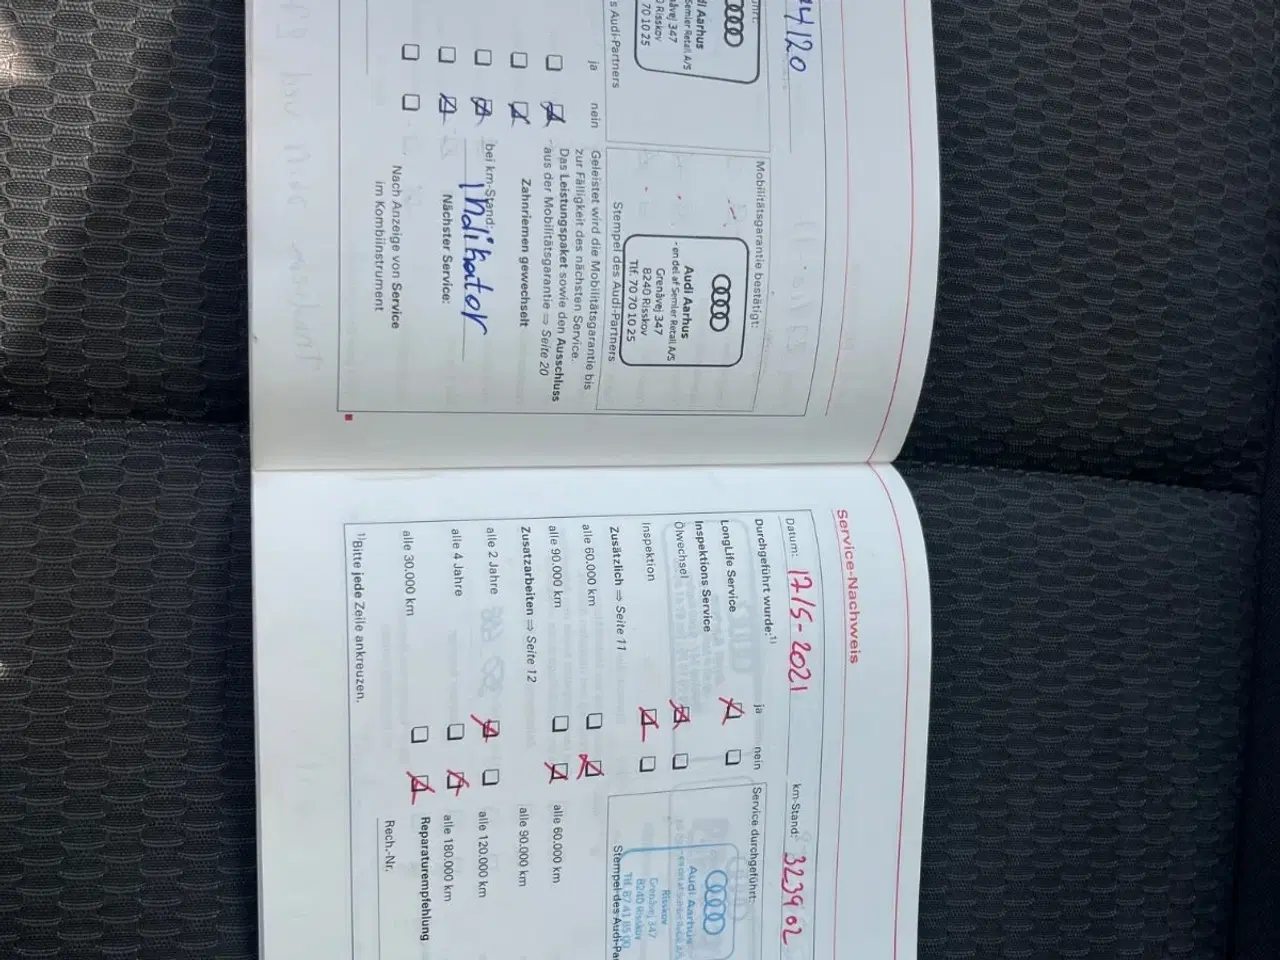 4/20
Audi Aarhus
Semler Retail A/S
347
Risskov
70 10 25
s Audi-Partners
ja nein
Mobilitätsgarantie bestätigt:
Audi Aarhus
- en del af Semler Retail A/S
Grenåvej 347
8240 Risskov
Tlf. 70 70 10 25
Stempel des Audi-Partners
Geleistet wird die Mobilitätsgarantie bis
zur Fälligkeit des nächsten Service.
Das Leistungspaket sowie den Ausschluss
aus der Mobilitätsgarantie ⇒ Seite 20
Zahnriemen gewechselt
bei km-Stand:
Indikator
Nächster Service:
Nach Anzeige von Service
im Kombiinstrument
Service-Nachweis
Datum: 17/5-2021 km-Stand: 323902
Durchgeführt wurde:1) ja nein Service durchgeführt:
LongLife Service
Inspektions Service
Ölwechsel
Inspektion
Audi Aarhus
Risskov
Grenåvej 347
8240 Risskov
Stempel des Audi-Pa
Zusätzlich ⇒ Seite 11
alle 60.000 km alle 60.000 km
alle 90.000 km alle 90.000 km
Zusatzarbeiten ⇒ Seite 12
alle 2 Jahre alle 120.000 km
alle 4 Jahre alle 180.000 km
alle 30.000 km Reparaturempfehlung
Rech.-Nr.
1)Bitte jede Zeile ankreuzen.